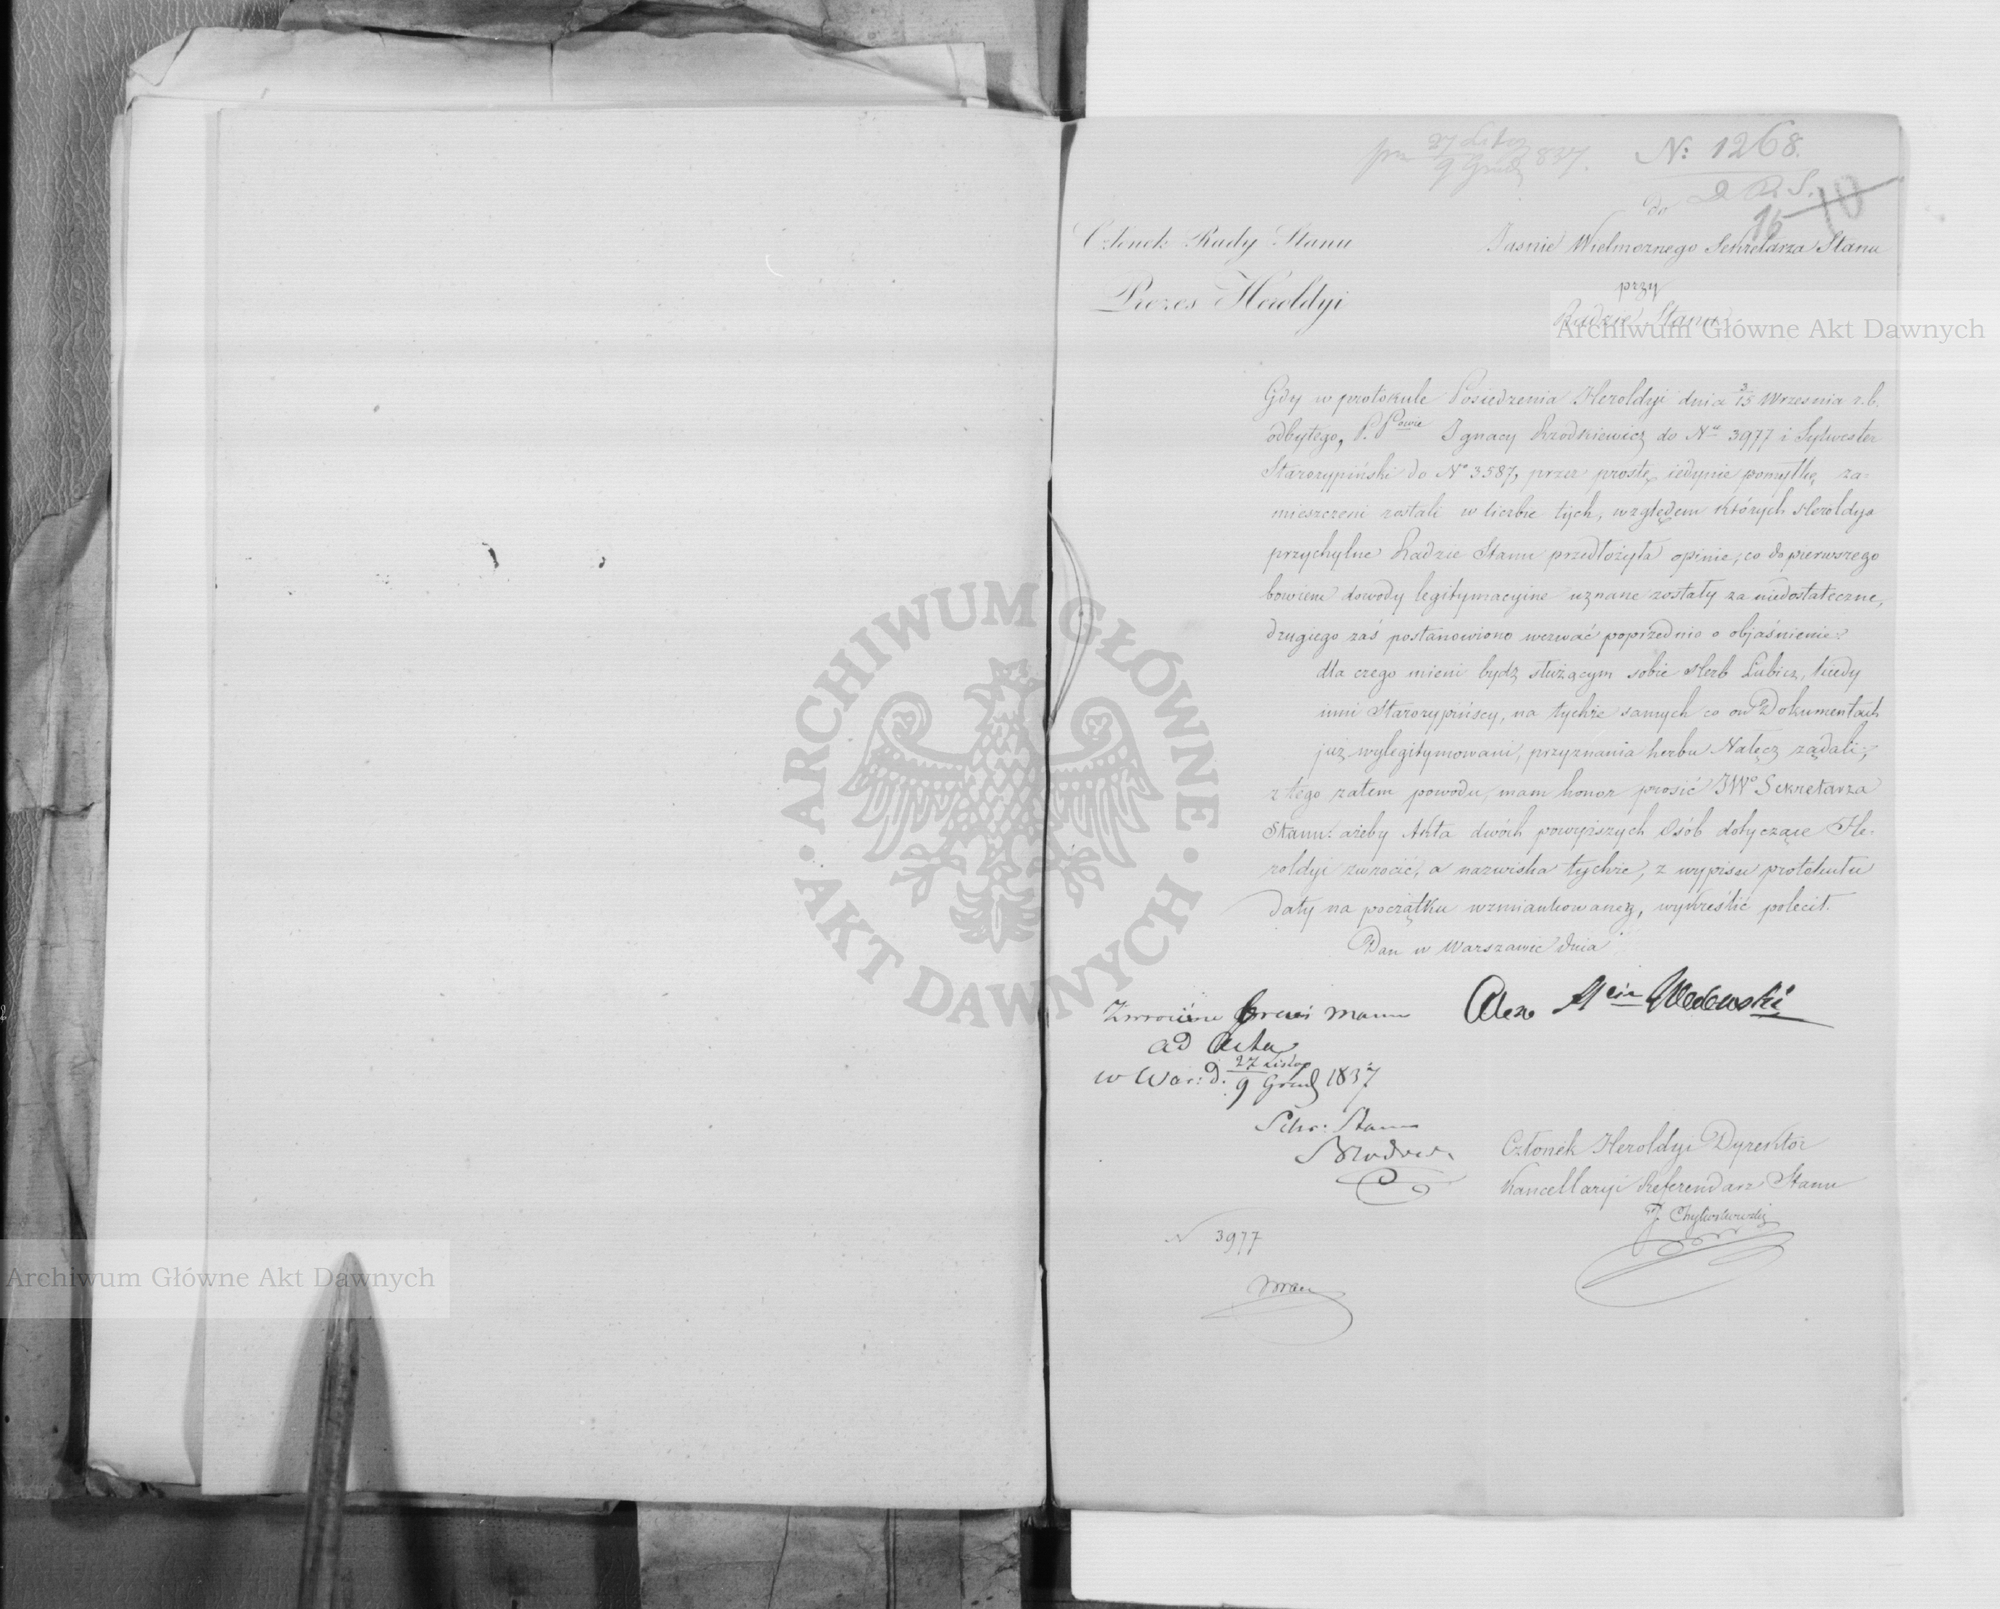 27 Listop
9 Grud 837.
N: 1268.
D. R. S.
do
16 10
Członek Rady Stanu
Jaśnie Wielmożnego Sekretarza Stanu
Prezes Heroldyi
przy
Radzie Stanu
Archiwum Główne Akt Dawnych
Gdy w protokule Posiedzenia Heroldyi dnia 3/15 Września r.b.
odbytego, P. Panowie Ignacy Srodkiewicz do Nu 3977 i Sylwester
Starorypiński do No 3587, przez prostę iedynie pomyłkę za-
mieszczeni zostali w liczbie tych, względem których Heroldya
przychylne Radzie Stanu przedłożyła opinie, co do pierwszego
bowiem dowody legitymacyine uznane zostały za niedostateczne,
drugiego zaś postanowiono wezwać poprzednio o objaśnienie:
dla czego mieni bydź służącym sobie Herb Lubicz, kiedy
inni Starorypińscy, na tychże samych co on Dokumentach
już wylegitymowani, przyznania herbu Nałęcz żądali;
z tego zatem powodu, mam honor prosić JWo Sekretarza
Stanu: ażeby Akta dwóch powyższych Osób dotyczące He-
roldyi zwrócić, a nazwiska tychże, z wypisu protokułu
daty na początku wzmiankowanej, wykreślić polecił.
Dan w Warszawie dnia
Alex
ad Acta
w War: d. 27 Listop
9 Grud 1837
Sekr: Stanu
Członek Heroldyi Dyrektor
Kancellaryi Referendarz Stanu
N 3977
ARCHIWUM GŁÓWNE
AKT DAWNYCH
Archiwum Główne Akt Dawnych